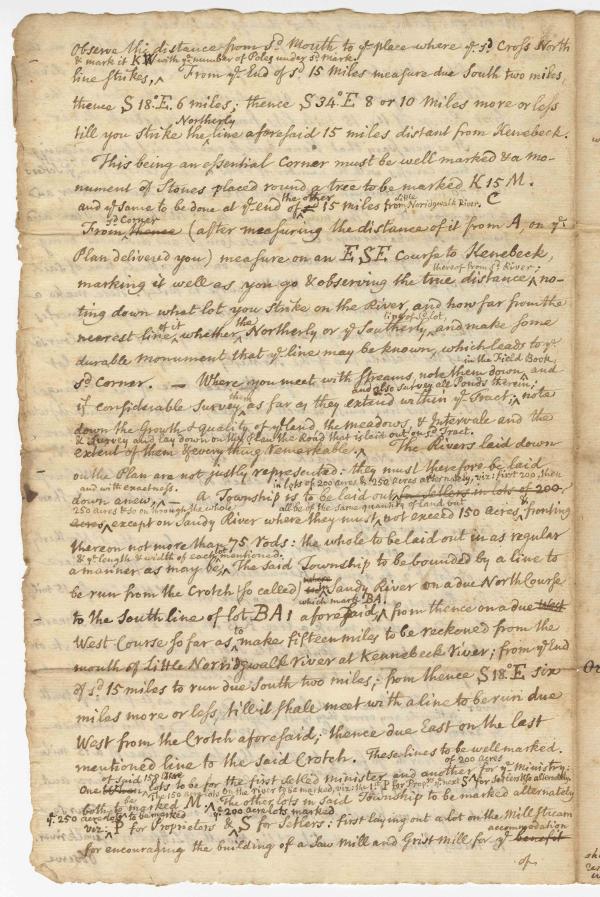 Observe the distance from sd. Mouth to ye. place where ye. sd. Cross North
& mark it KW with ye. number of Poles under sd. mark.
line strikes, ^ From ye. End of sd. 15 Miles measure due South two miles,
thence S 18° E. 6 miles; thence S 34° E 8 or 10 Miles more or less
Northerly
till you strike the ^ line aforesaid 15 miles distant from Kenebeck.
This being an essential Corner must be well marked & a mo-
nument of Stones placed round a tree to be marked K 15 M.
the other little
and ye. same to be done at ye. end of sd. 15 miles from Norridgwalk River. C
sd. Corner
From ^ thence (after measuring the distance of it from A, on ye.
Plan delivered you) measure on an ESE Course to Kenebeck,
thereof from sd. River;
marking it well as you go & observing the true distance ^ no-
ting down what lot you strike on the River, and how far from the
of it the line of sd. lot,
nearest line ^ whether ^ Northerly or ye. Southerly ^ and make some
durable monument that ye. line may be known, which leads to ye.
in the Field Book,
sd. Corner. — Where you meet with Streams, note them down ^ and
them and also survey all Ponds therein;
if considerable Survey ^ as far as they extend within ye. Tract; ^ note
down the Growth & quality of ye. land the meadows, & Intervale and the
& Survey and lay down on this Plan the Road that is laid out on sd. Tract.
extent of them & every thing remarkable. ^ The Rivers laid down
on the Plan are not justly represented: they must therefore be laid
and with exactness. in lots of 200 acres & 250 acres alternately, viz: first 200, then
down anew, ^ — A Township is to be laid out ^ for settlers in lots of 200
250 acres & so on through the whole all be of the same quantity of land but &
acres, except on Sandy River where they must ^ not exceed 150 acres ^ fronting
thereon not more than 75 Rods: the whole to be laid out in as regular
& ye. length & width of each lot mentioned.
a manner as may be, ^ The said Township to be bounded by a line to
be run from the Crotch so called ^ Sandy River on a due North Course
which mark BA.
to the South line of lot BA1 aforesaid, ^ from thence on a due West
to
West Course so far as ^ make fifteen miles to be reckoned from the
mouth of Little Norridgwalk river at Kennebeck River; from ye. End
of sd. 15 miles to run due South two miles; from thence S 18° E six
miles more or less, till it shall meet with a line to be run due
West from the Crotch aforesaid; thence due East on the last
mentioned line to the said Crotch. These lines to be well marked.
of said 150 acre of 200 acres
One lots to be for the first setled minister and another ^ for ye. Ministry:
The 150 acre lots on the river to be marked, viz: the 1st. P for Propr. ye. next S for Setlers & so alternately.
be
both to marked M. ^ The other lots in said Township to be marked alternately
ye. 250 acre lots to be marked ye. 200 acre lots marked
viz: ^ P for Proprietors & ^ S for Setlers: first laying out a lot on the Mill Stream
accommodation
for encouraging the building of a Saw Mill and Grist Mill for ye. benefit
of